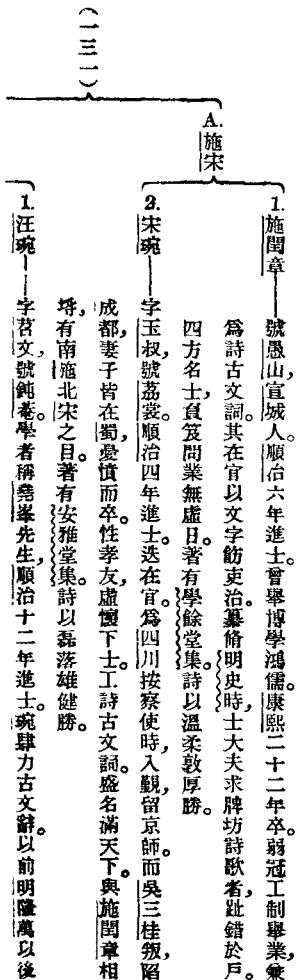 (一三一)
A. 施宋
1. 施閏章——號愚山，宣城人。順治六年進士。曾舉博學鴻儒。康熙二十二年卒。弱冠工制舉業，兼
爲詩古文詞。其在官以文字飭吏治。纂脩明史時，士大夫求牌坊詩歌者，趾錯於戶。
四方名士，負笈問業無虛日。著有學餘堂集。詩以溫柔敦厚勝。
2. 宋琬——字玉叔，號荔裳。順治四年進士。迭在官。爲四川按察使時，入覲，留京師。而吳三桂叛，陷
成都，妻子皆在蜀，憂憤而卒。性孝友，虛懷下士。工詩古文詞。盛名滿天下。與施閏章相
埒，有南施北宋之目。著有安雅堂集。詩以磊落雄健勝。
1. 汪琬——字苕文，號鈍菴。學者稱堯峯先生，順治十二年進士。琬肆力古文辭。以前明隆萬以後